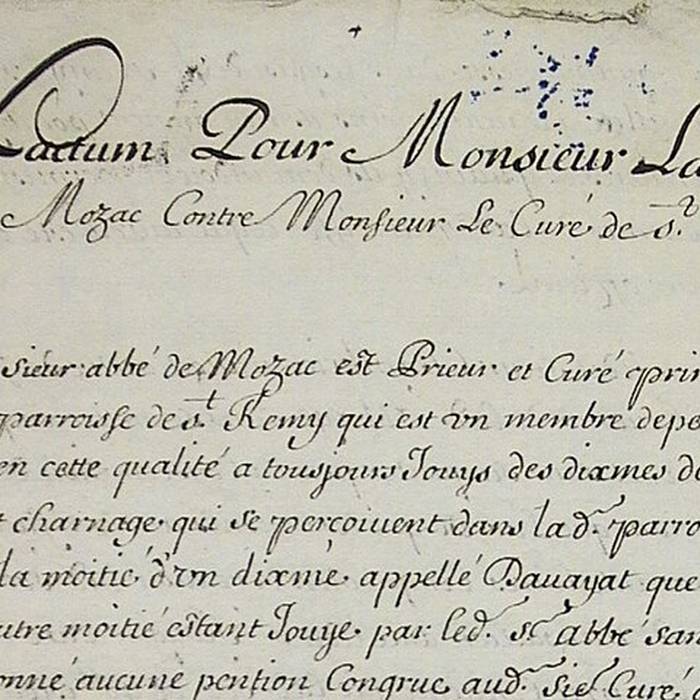 Factum Pour Monsieur La
Mozac Contre Monsieur Le Curé de s.t
sieur abbé de Mozac est Prieur et Curé prin
parroisse de s.t Remy qui est vn membre depe
en cette qualité a tousjours Jouys des dixmes de
t charnage qui se perçoiuent dans lad. parro
la moitié d'vn dixme appellé Dauayat que
utre moitié estant Jouye par led. sr abbé san
onné aucune pention Congrue aud. sier Curé